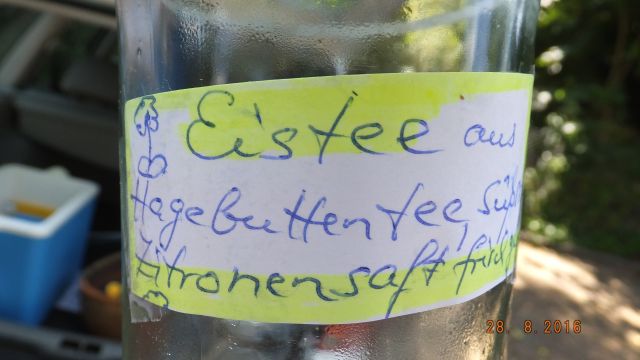 Eistee aus
Hagebuttentee,
Zitronensaft,
28. 8.2016